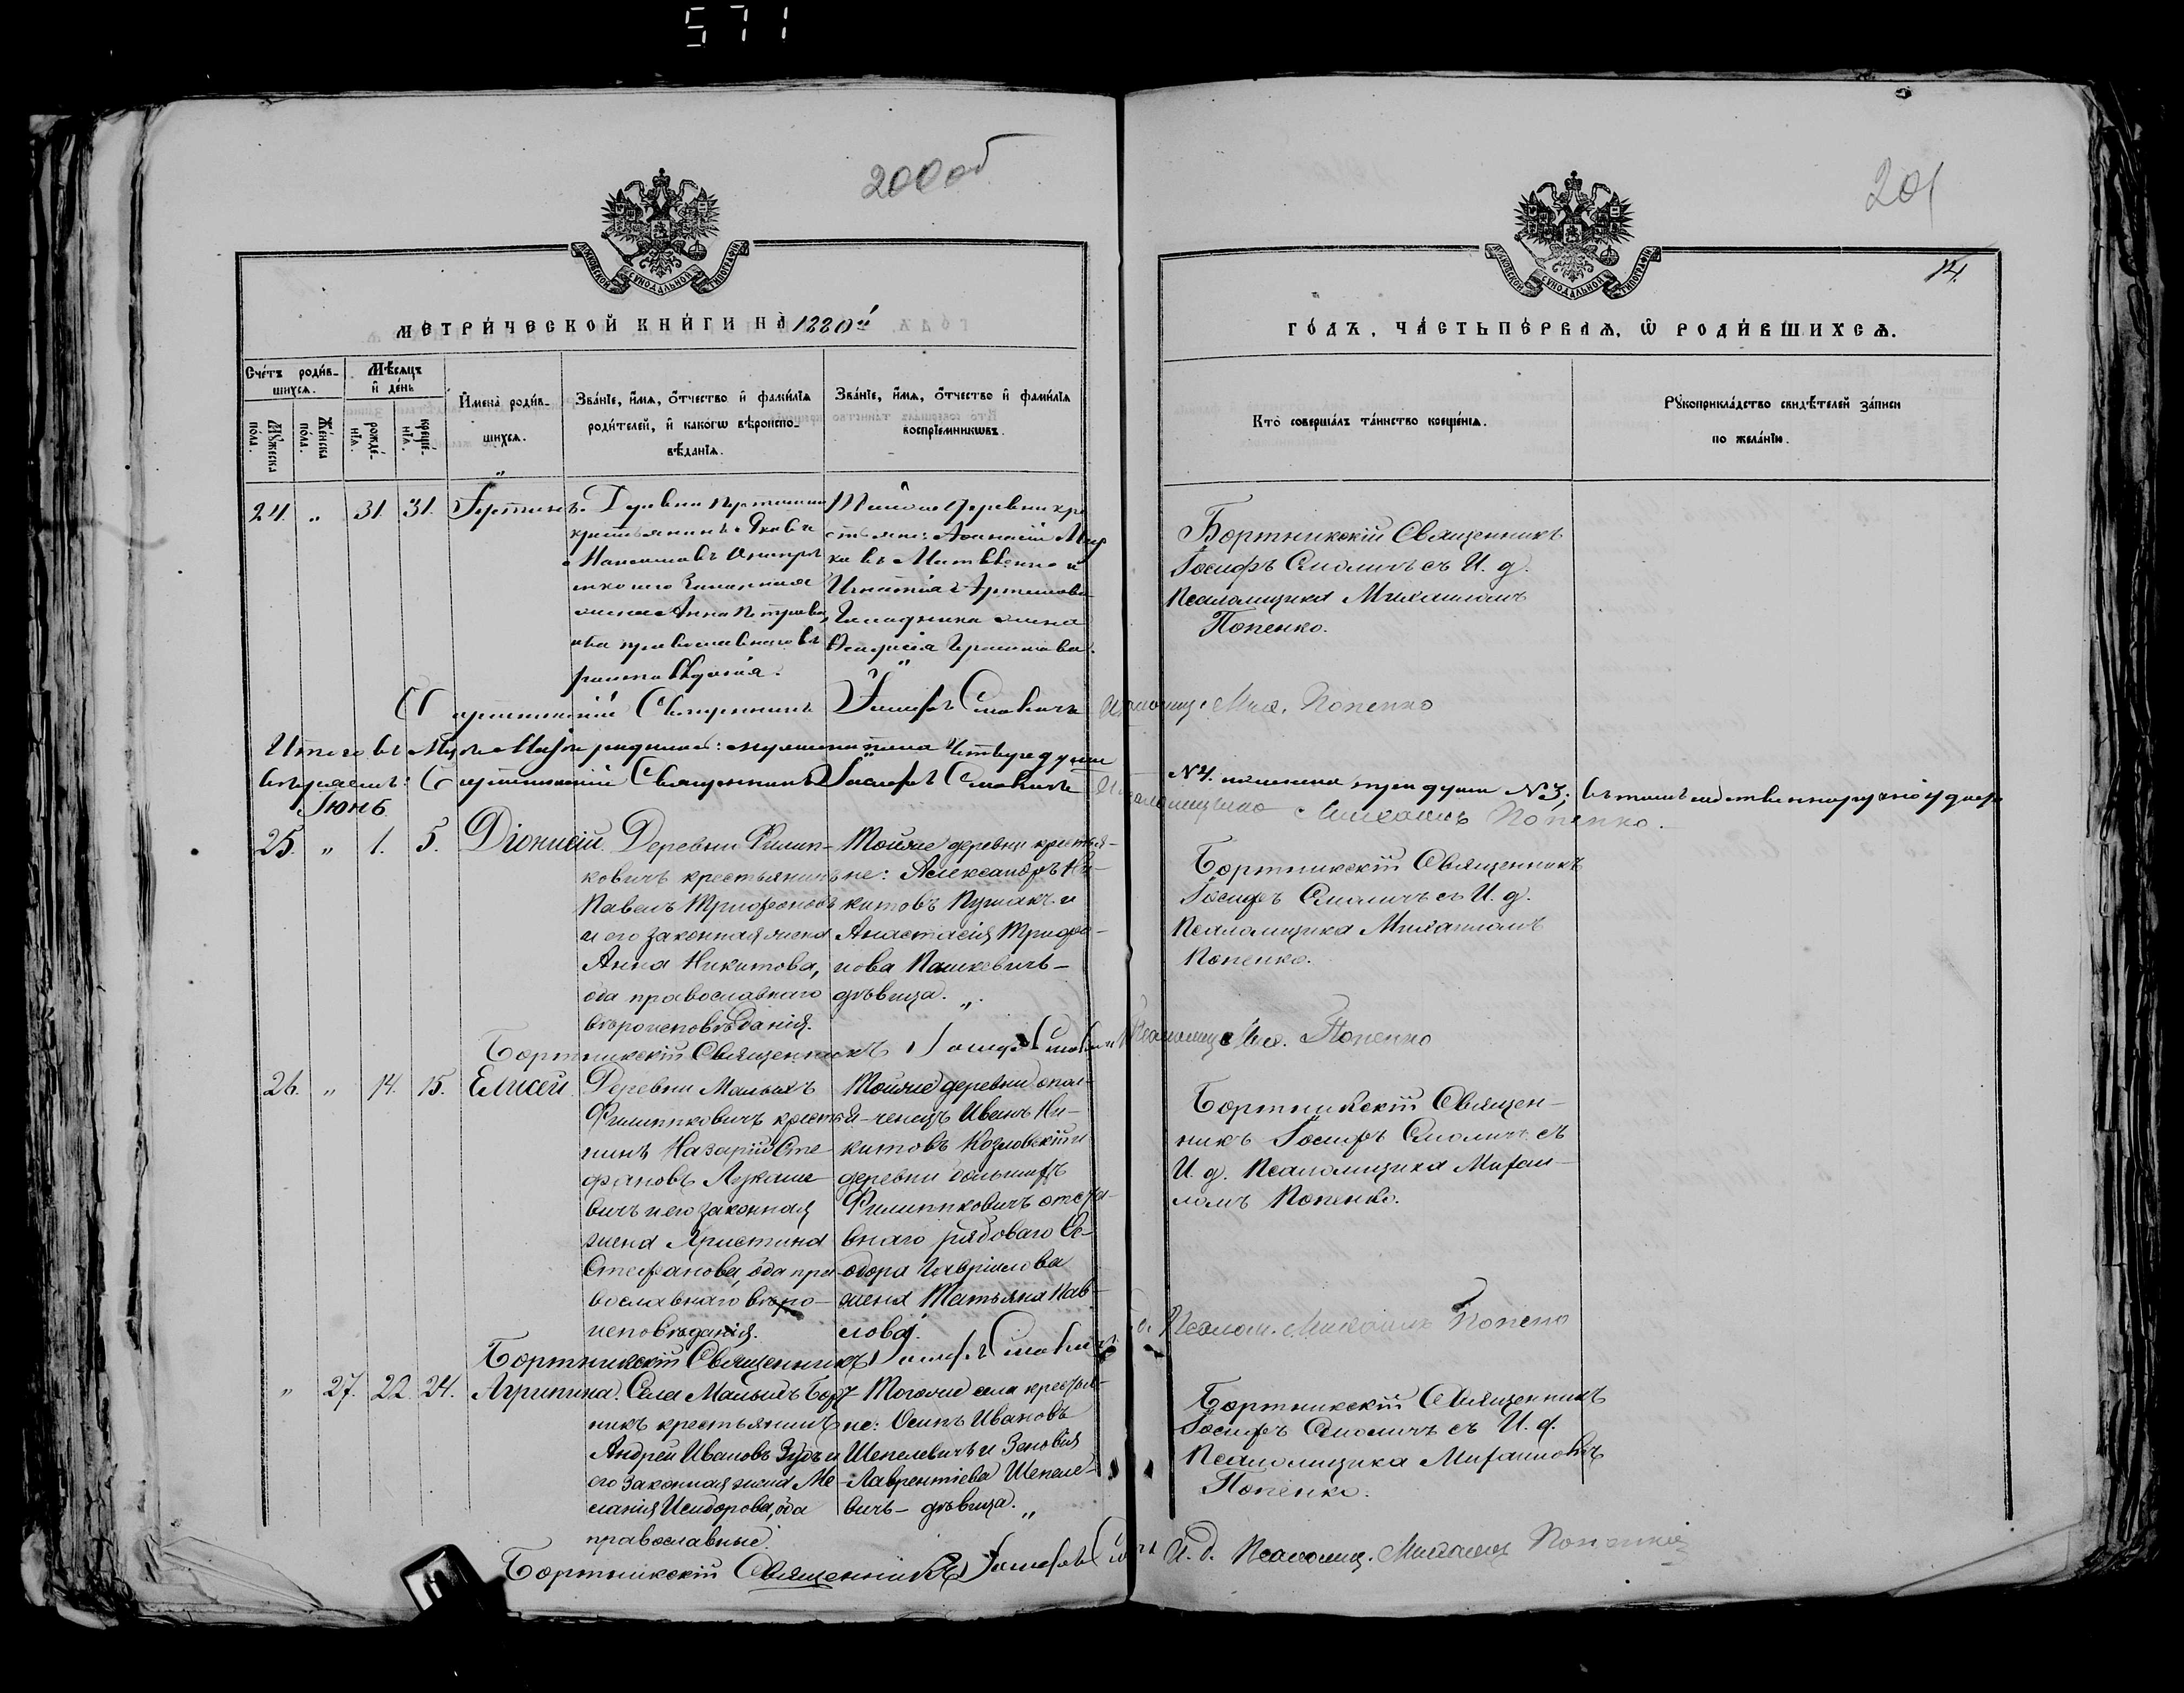 571
200 об
201
14.
МЕТРИ́ЧЕСКОЙ КНИ́ГИ НА 1880й
ГО́ДЪ, ЧА́СТЬ ПЕ́РВАЯ, Ѡ РОДИ́ВШИХСЯ.
Сче́тъ роди́в-
шихся.
Мѣ́сяцъ
и де́нь
Мꙋ́жеска
по́ла.
Же́нска
по́ла.
рожде́-
нїя.
креще́-
нїя.
Имена̀ роди́в-
шихся.
Зва́нїе, и́мя, ѻ́тчество и фами́лїя
роди́телей, и како́гѡ вѣроиспо-
вѣ́данїя.
Зва́нїе, и́мя, ѻ́тчество и фами́лїя
воспрїе́мникѡвъ.
Кто̀ соверша́лъ та́инство креще́нїя.
Рꙋкоприкла́дство свидѣ́телей за́писи
по жела́нїю.
24. " 31. 31.
Деревни
крестьянинъ Яковъ
законная
жена Анна Петрова,
оба православнаго вѣ
роисповѣданія.
Тойже деревни кре
стьяне:
Бортникскій Священникъ
Іосифъ Смоличъ съ И. д.
Псаломщика Михаиломъ
Попенко.
Бортникскій Священникъ Іосифъ Смоличъ
Псаломщ. Мих. Попенко
Итого въ Маѣ родилось: мужеска пола четыре души
Священникъ Іосифъ Смоличъ
Михаилъ Попенко.
Іюнь
25. " 1. 5. Діонисій.
Деревни Филип-
ковичъ крестьянинъ
Павелъ Трифоновъ
и его законная жена
Анна Никитова,
оба православнаго
вѣроисповѣданія.
Тойже деревни крестья-
не: Александръ Ни-
китовъ и
Анастасія Трифо-
нова Пашкевичъ -
дѣвица. "
Бортникскій Священникъ
Іосифъ Смоличъ съ И. д.
Псаломщика Михаиломъ
Попенко.
Бортникскій Священникъ Іосифъ Смоличъ
Псаломщ. Мих. Попенко
26. " 14. 15. Елисей.
Деревни Малыхъ
Филипковичъ крестья-
нинъ Назарій Сте
фановъ Лукаше
вичъ и его законная
жена Христина
Стефанова, оба пра
вославнаго вѣро-
исповѣданія.
Тойже деревни опол-
ченецъ Иванъ Ни-
китовъ Козловскій и
деревни большихъ
Филипковичъ отста-
внаго рядоваго Ѳе-
одора Гавріилова
жена Татьяна Пав-
лова.
Бортникскій Священ-
никъ Іосифъ Смоличъ съ
И. д. Псаломщика Михаи-
ломъ Попенко.
Бортникскій Священникъ Іосифъ Смоличъ
Псалом. Михаилъ Попенко
" 27. 22. 24. Агрипина.
Села Малыхъ Борт
никъ крестьянинъ
Андрей Ивановъ Зубъ и
его законная жена Ме-
ланія Исидорова, оба
православные.
Тогоже села крестья-
не: Осипъ Ивановъ
Шепелевичъ и Зеновія
Лаврентіева Шепеле-
вичъ - дѣвица. "
Бортникскій Священникъ
Іосифъ Смоличъ съ И. д.
Псаломщика Михаиломъ
Попенко.
Бортникскій Священникъ Іосифъ Смоличъ
И. д. Псаломщ. Михаилъ Попенко